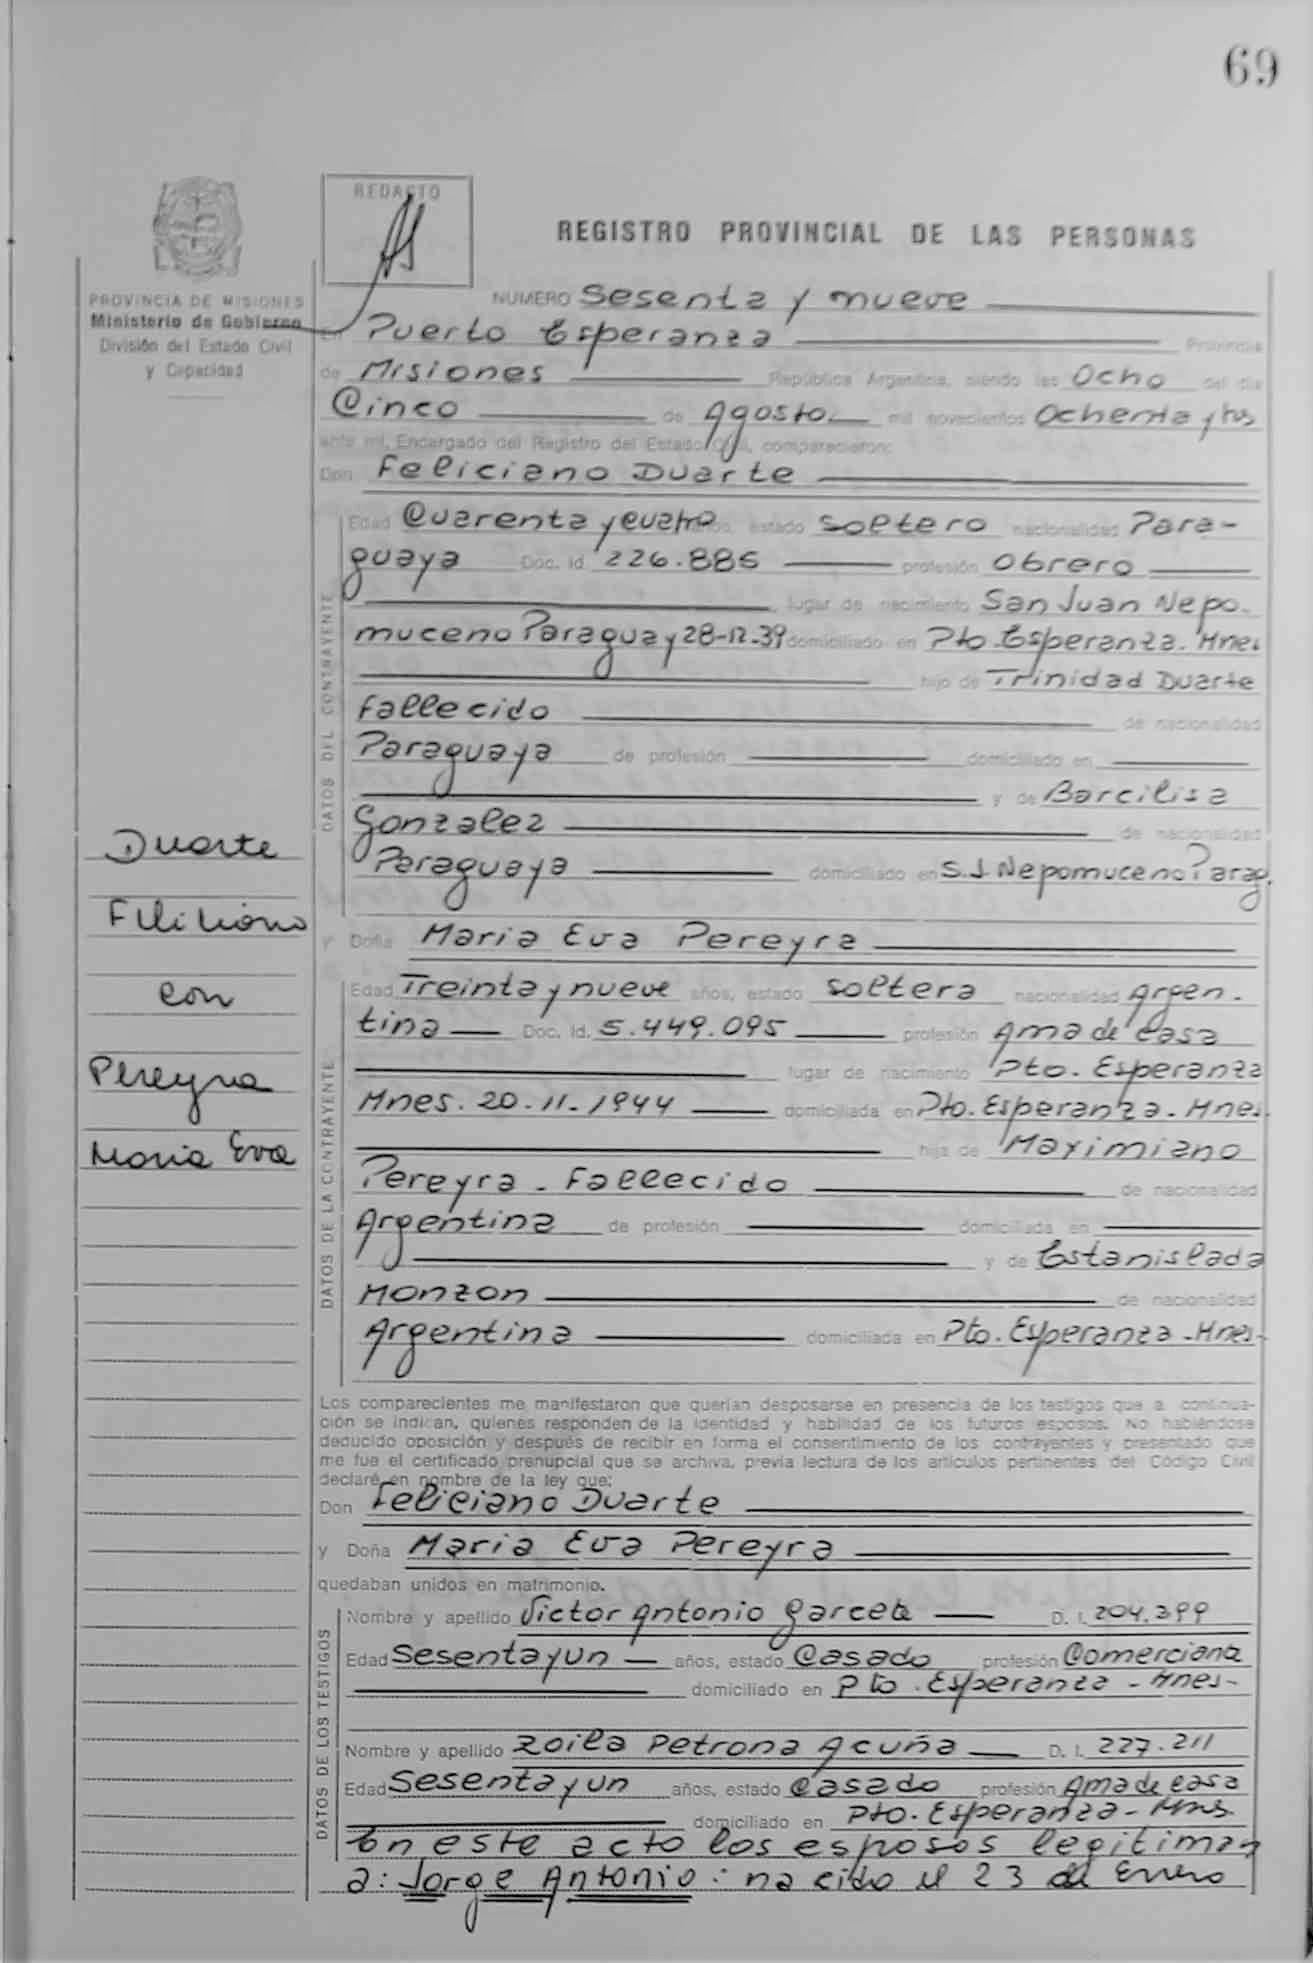 69
REDACTO
REGISTRO PROVINCIAL DE LAS PERSONAS
PROVINCIA DE MISIONES
Ministerio de Gobierno
División del Estado Civil
y Capacidad
NUMERO Sesenta y nueve
En Puerto Esperanza Provincia
de Misiones República Argentina, siendo las Ocho del día
Cinco de Agosto mil novecientos Ochenta y tres
ante mí, Encargado del Registro del Estado Civil, comparecieron:
Don Feliciano Duarte
DATOS DEL CONTRAYENTE
Edad Cuarenta y cuatro años, estado soltero nacionalidad Para-
guaya Doc. Id. 226.885 profesión Obrero
lugar de nacimiento San Juan Nepo.
muceno Paraguay 28-12-39 domiciliado en Pto. Esperanza. Mnes
hijo de Trinidad Duarte
Fallecido de nacionalidad
Paraguaya de profesión domiciliado en
y de Barcilisa
Gonzalez de nacionalidad
Paraguaya domiciliado en S.J. Nepomuceno Parag.
Duarte
Feliciano
con
Pereyra
Maria Eva
y Doña Maria Eva Pereyra
DATOS DE LA CONTRAYENTE
Edad Treinta y nueve años, estado soltera nacionalidad Argen.
tina Doc. Id. 5.449.095 profesión Ama de casa
lugar de nacimiento Pto. Esperanza
Mnes. 20.11.1944 domiciliada en Pto. Esperanza. Mnes.
hija de Maximiano
Pereyra. Fallecido de nacionalidad
Argentina de profesión domiciliada en
y de Estanislada
Monzon de nacionalidad
Argentina domiciliada en Pto. Esperanza. Mnes-
Los comparecientes me manifestaron que querían desposarse en presencia de los testigos que a continua-
ción se indican, quienes responden de la identidad y habilidad de los futuros esposos. No habiéndose
deducido oposición y después de recibir en forma el consentimiento de los contrayentes y presentado que
me fue el certificado prenupcial que se archiva, previa lectura de los artículos pertinentes del Código Civil
declaré en nombre de la ley que:
Don Feliciano Duarte
y Doña Maria Eva Pereyra
quedaban unidos en matrimonio.
DATOS DE LOS TESTIGOS
Nombre y apellido Victor Antonio Garcete D. I. 204.399
Edad Sesenta y un años, estado Casado profesión Comerciana
domiciliado en Pto. Esperanza - Mnes-
Nombre y apellido Zoila Petrona Acuña D. I. 227.211
Edad Sesenta y un años, estado Casado profesión Ama de casa
domiciliado en Pto. Esperanza - Mnes
En este acto los esposos legitiman
a: Jorge Antonio: nacido el 23 de Enero